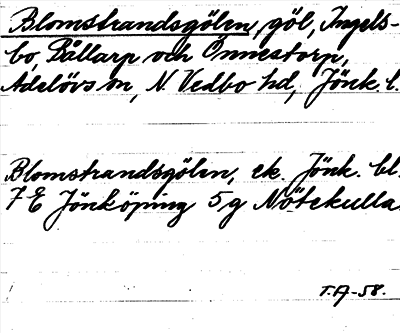 Blomstrandsgölen, göl, Ingels-
bo, Pållarp och Önnestorp,
Adelövs sn, N. Vedbo hd, Jönk. l.
Blomstrandsgölen, ek. Jönk. bl.
7 E Jönköping 5 g Nötekulla.
T.A-58.